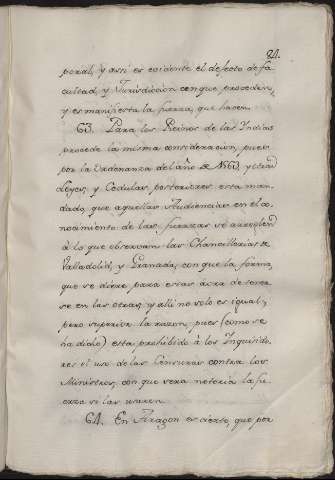 21.
poral, y assi es evidente el defecto de fa
cultad, y Jurisdiccion con que proceden,
y es manifiesta la fuerza, que hacen.
63. Para los Reinos de las Indias
procede la misma consideracion, pues
por la Ordenanza del año de
Leyes, y Cedulas posteriores esta man
dado, que aquellas Audiencias en el co
nocimiento de las fuerzas se arreglen
à lo que observan las Chancillerias de
Valladolid, y Granada, con que la forma,
que se diere para estas acra de tener
se en las otras, y alli no solo es igual,
pero superior la razon, pues (como se
ha dicho) està prohibido à los Inquisido
res el uso de las Censuras contra los
Ministros, con que sera notoria la fu
erza si las usaren.
64. En Aragon es cierto, que por